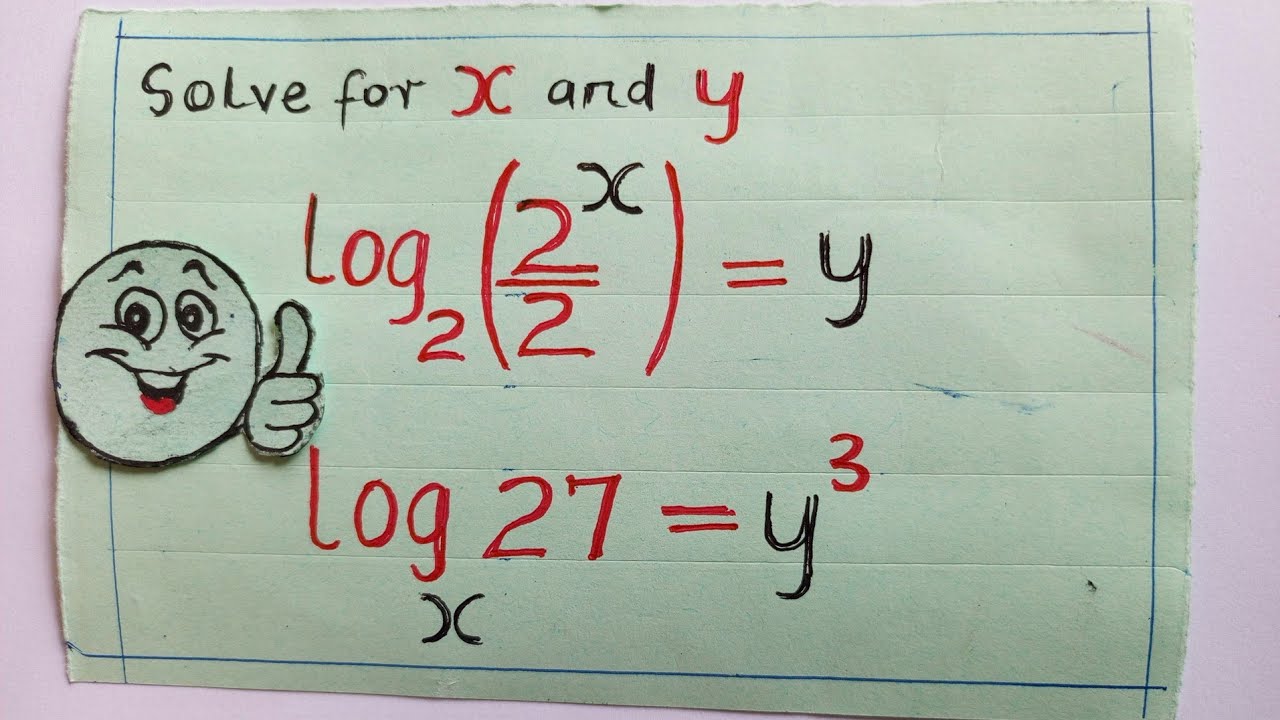 Solve for x and y
log₂(2ˣ/2) = y
logₓ 27 = y³